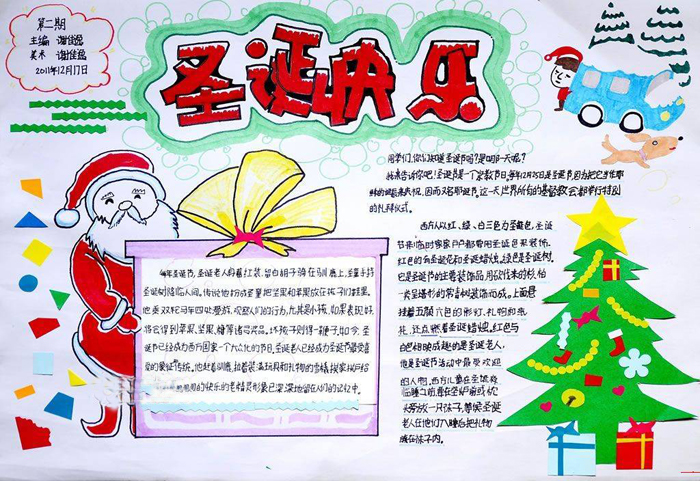 第二期
主编 谢佳逸
美术 谢佳逸
2011年12月17日
圣诞快乐
同学们,你们知道圣诞节吗?是哪一天呢?
我来告诉你吧!圣诞节是一个宗教节日,每年12月25日是圣诞节因为把它当作耶
稣的诞辰来庆祝,因而又名耶诞节。这一天世界所有的基督教会都举行特别
的礼拜仪式。
西方人以红、绿、白三色为圣诞色,圣诞
节来临时家家户户都要用圣诞色来装饰。
红色的有圣诞花和圣诞蜡烛。绿色是圣诞树。
它是圣诞节的主要装饰品,用砍伐来的杉、柏
一类呈塔形的常青树装饰而成。上面悬
挂着五颜六色的彩灯、礼物和纸
花,还点燃着圣诞蜡烛。红色与
白色相映成趣的是圣诞老人,
他是圣诞节活动中最受欢迎
的人物。西方儿童在圣诞夜
临睡之前,要在壁炉前或枕
头旁放一只袜子,等候圣诞
老人在他们入睡后把礼物
放在袜子内。
每年圣诞节,圣诞老人骑着
红装,留白胡子骑在驯鹿上,圣童手持
圣诞树降临人间。传说他扮成圣童把坚果和苹果放在孩子们鞋里。
他乘双轮马车四处旁游,观察人们的行为,尤其是小孩,如果表现好,
将会得到苹果、坚果、糖等诸多奖品。坏孩子则得一鞭子,如今,圣
诞节已经成为西方国家一个大众化的节日,圣诞老人已经成为圣诞节最受喜
爱的象征,传统。他赶着驯鹿,拉着装满玩具和礼物的雪橇挨家挨户给
的快乐的老精灵形象已深深地留在人们的记忆中。